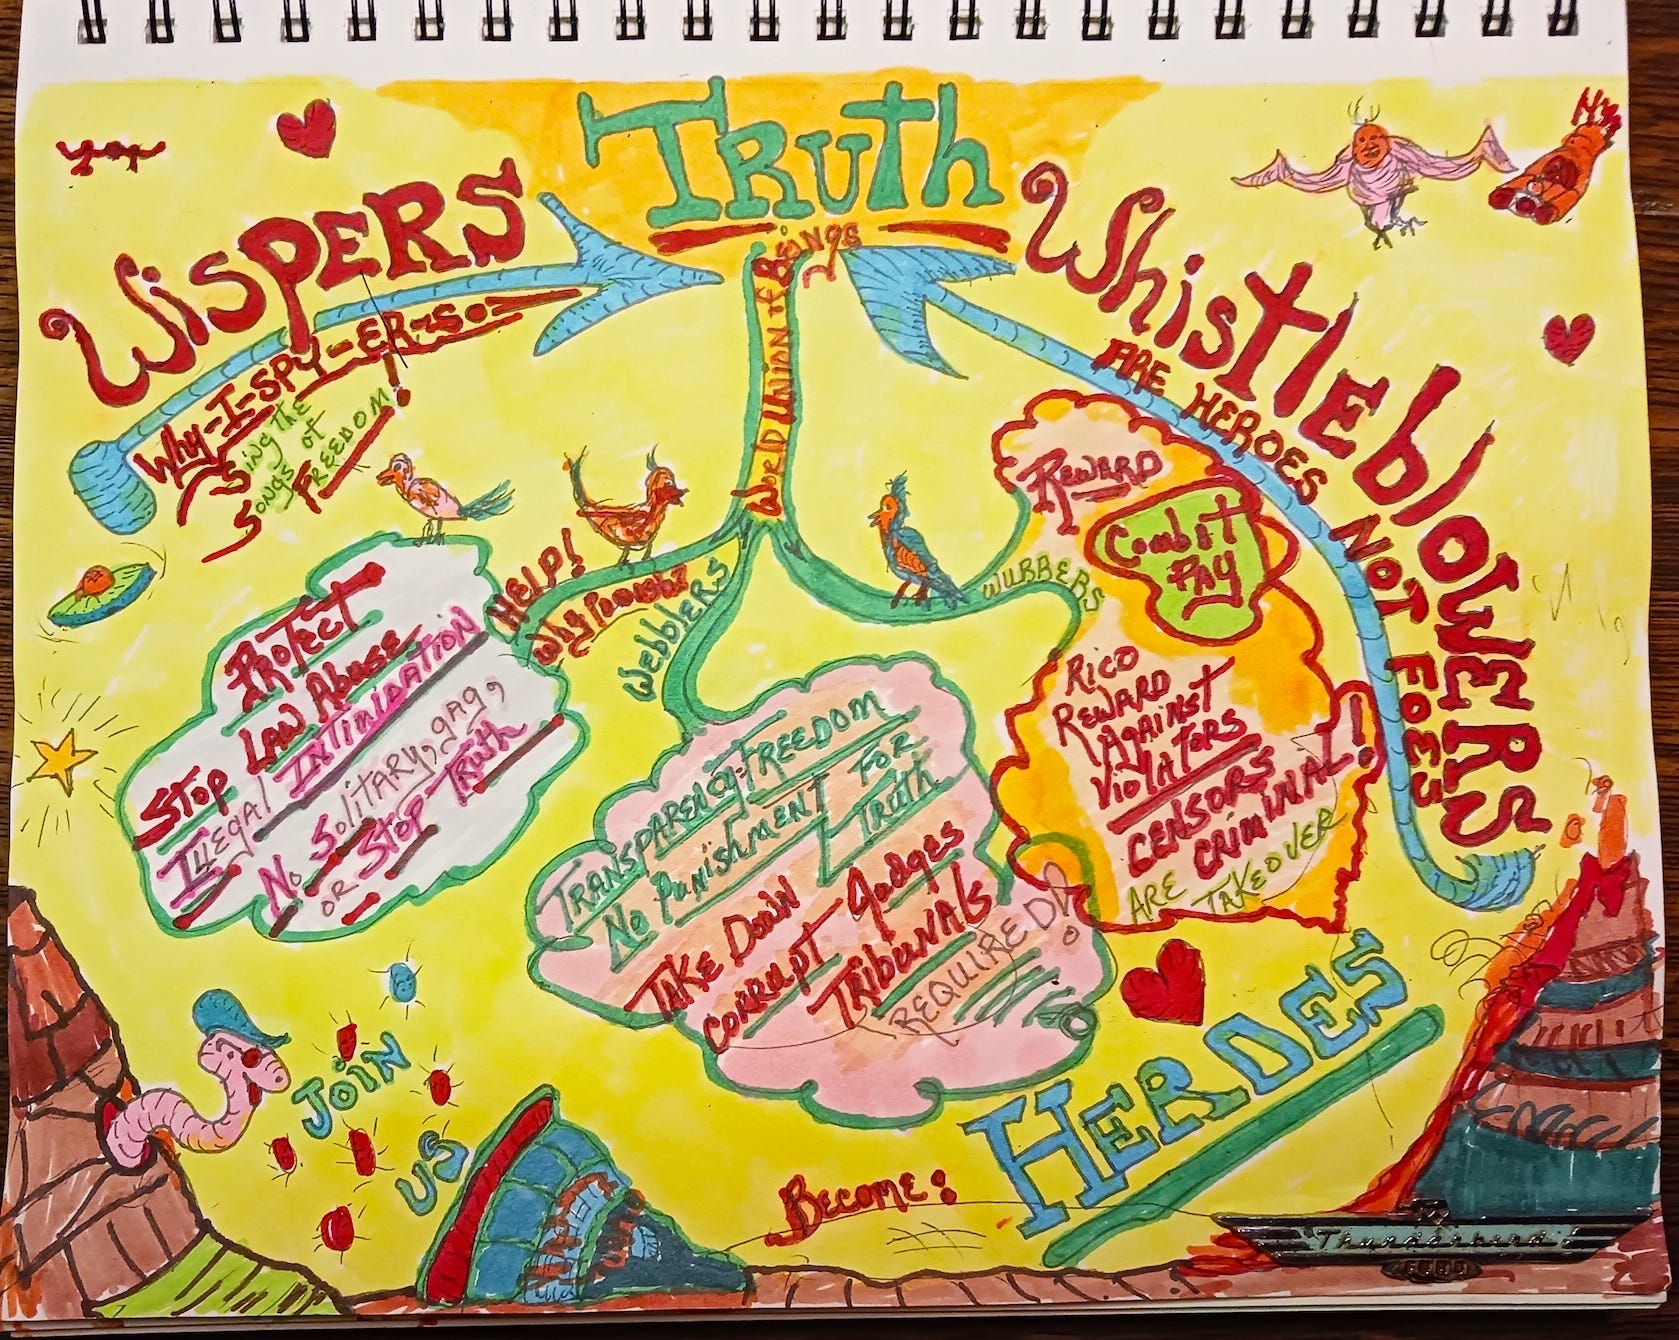 TRUTH
WISPERS
WHY-I-SPY-ER-S
SING THE
SONGS of
FREEDOM!
WhistleblowERS
ARE HEROES NOT FOES
WORLD UNION of BEINGS
HELP!
Why Punish?
WEbblERS
WUBBERS
PROTECT
STOP LAW AbusE
IllEgal INTIMIDATION
No Solitary, gag,
OR STOP TRuth
TRANSPARENCY-FREEDOM
No PUNiShMENT FOR
TRUTH
TAKE DOWN
CORRUPT Judges
TRibuNAlS
REQUIRED!
REWARD
Combit
PAY
RICO
REWARD
AgAiNST
VIOlATORS
CENSORS
CRIMINAL!
ARE TAKEOVER
JOIN
US
BECOME:
HEROES
Thunderbird
FORD